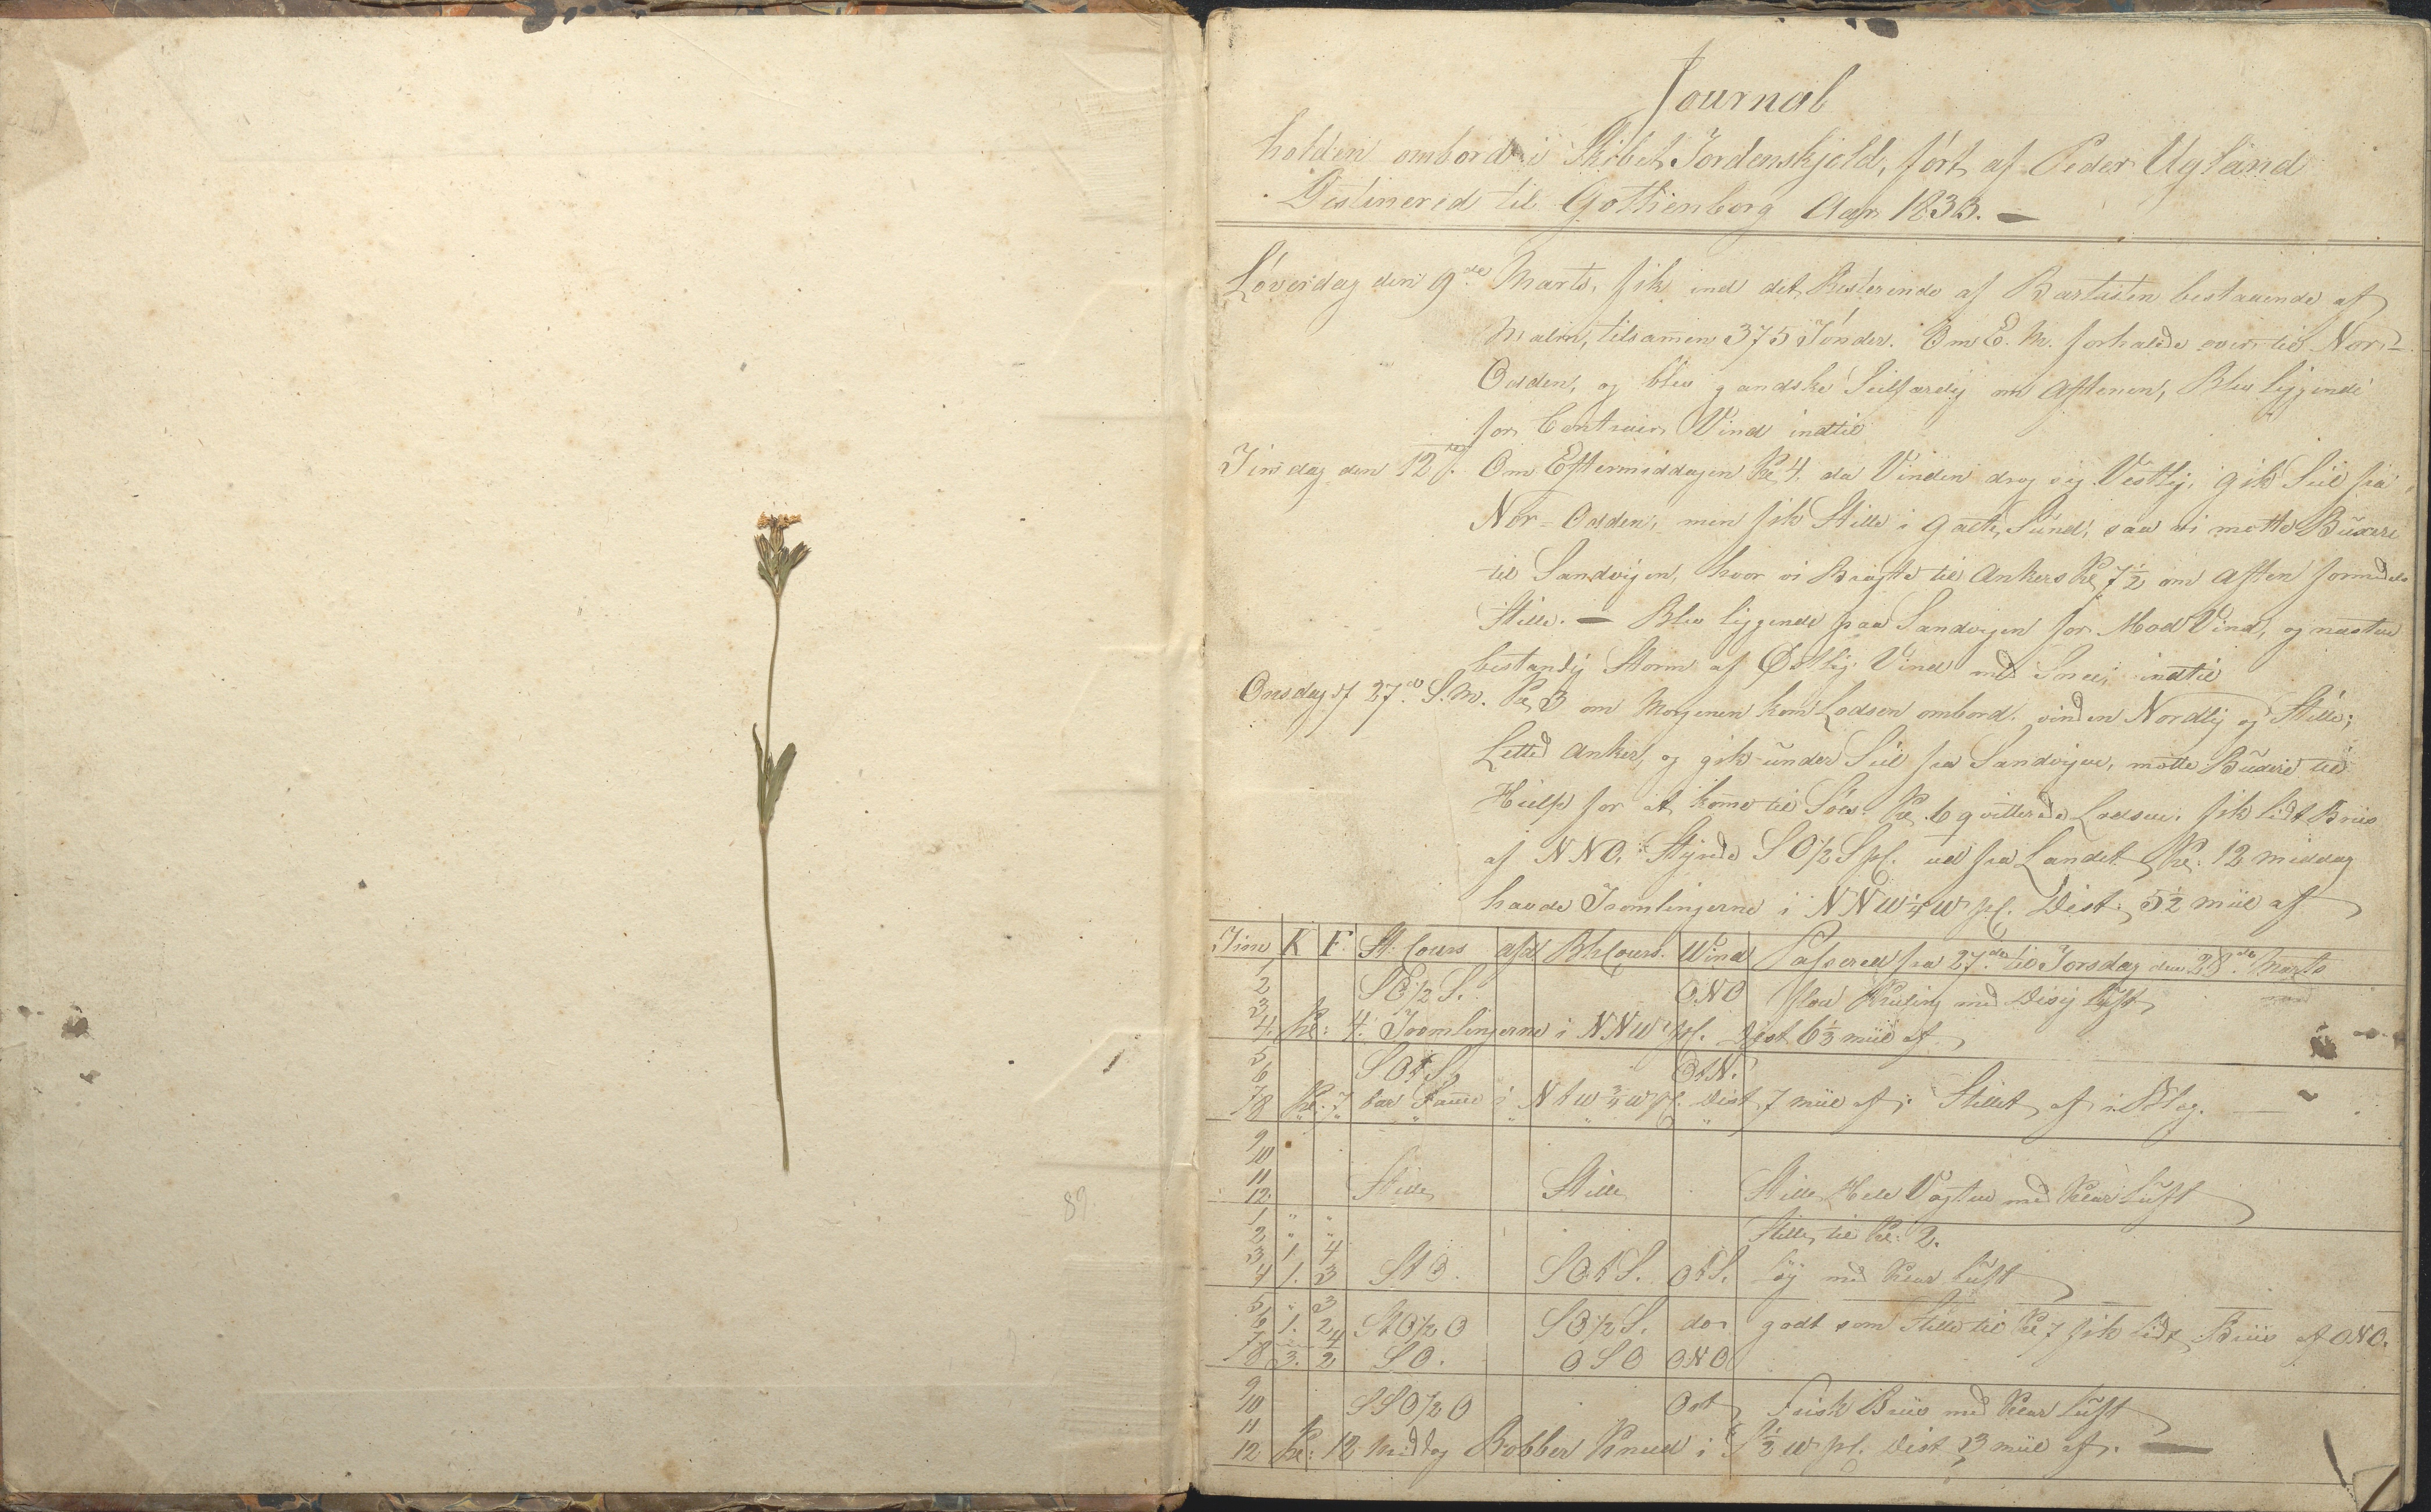 Journal
holden ombord i Skibet Tordenskjold, ført af Peder Ugland
Destinered til Gothenborg Aar 1833. —
Løverdag den 9de Marts, fik ind det Resterende af Bartasten bestaaende af
Malm, tilsamen 375 Tønder. Om E. M. forhalede over til Nor-
Odden, og blev gandske Seilfærdig om Aftenen, Blev liggende
for Contrair Vind indtil
Tirsdag den 12te. Om Eftermiddagen Kl 4. da Vinden drog sig Vestlig, gik Seil fra
Nor-Odden, men fik Stille i Galte Sund, saa vi motte Buxere
til Sandvigen, hvor vi Bragte til Ankers Kl 7½ om Aften formedels
Stille. — Blev liggende paa Sandvigen for Mod Vind, og næsten
bestandig Storm af Østlig Vind med Snee, indtil
Onsdag d 27de S. M. Kl 3 om Morgenen kom Lodsen ombord. vinden Nordlig og Stille;
Letted Anker, og gik under Seil fra Sandvigen, motte Buxere til
Hielp for at komme til Søes. Kl. 6 qvitterede Lodsen. fik lidt Briis
af NNO. Styrede SO½S pl. ud fra Landet Kl: 12 middag
havde Tromlingerne i NNW¼W pl. Dist: 5½ miil af
Time K F St. Cours afd BhCours. Wind Passered fra 27de til Torsdag den 28de Marts
1
2 SO½S. ONO flau Kuling med Disig luft
3
4. Kl: 4. Tromlingerne i NNW pl. Dist 6⅓ miil af.
5
6 SOtS OtN.
7
8 Kl: 7 bar i NtW¾W pl. Dist 7 miil af; Stillet af
9
10
11
12. Stille Stille Stille Hele Vagten med Klar luft
1 " "
2 " " Stille til Kl: 2.
3 1. 4
4 1. 3 StO. SOtS. OtS. Løy med Klar luft
5 " 3
6 1. 2 StO½O SO½S. do. godt som Stille til Kl 7 fik lidt Briis af ONO.
7 2 4
8 3. 2 SO. OSO ONO
9
10 SSO½O Ost Frisk Briis med Klar luft
11
12 Kl: 12 Middag Bobber Knud i pl. Dist 3 miil af. —
89